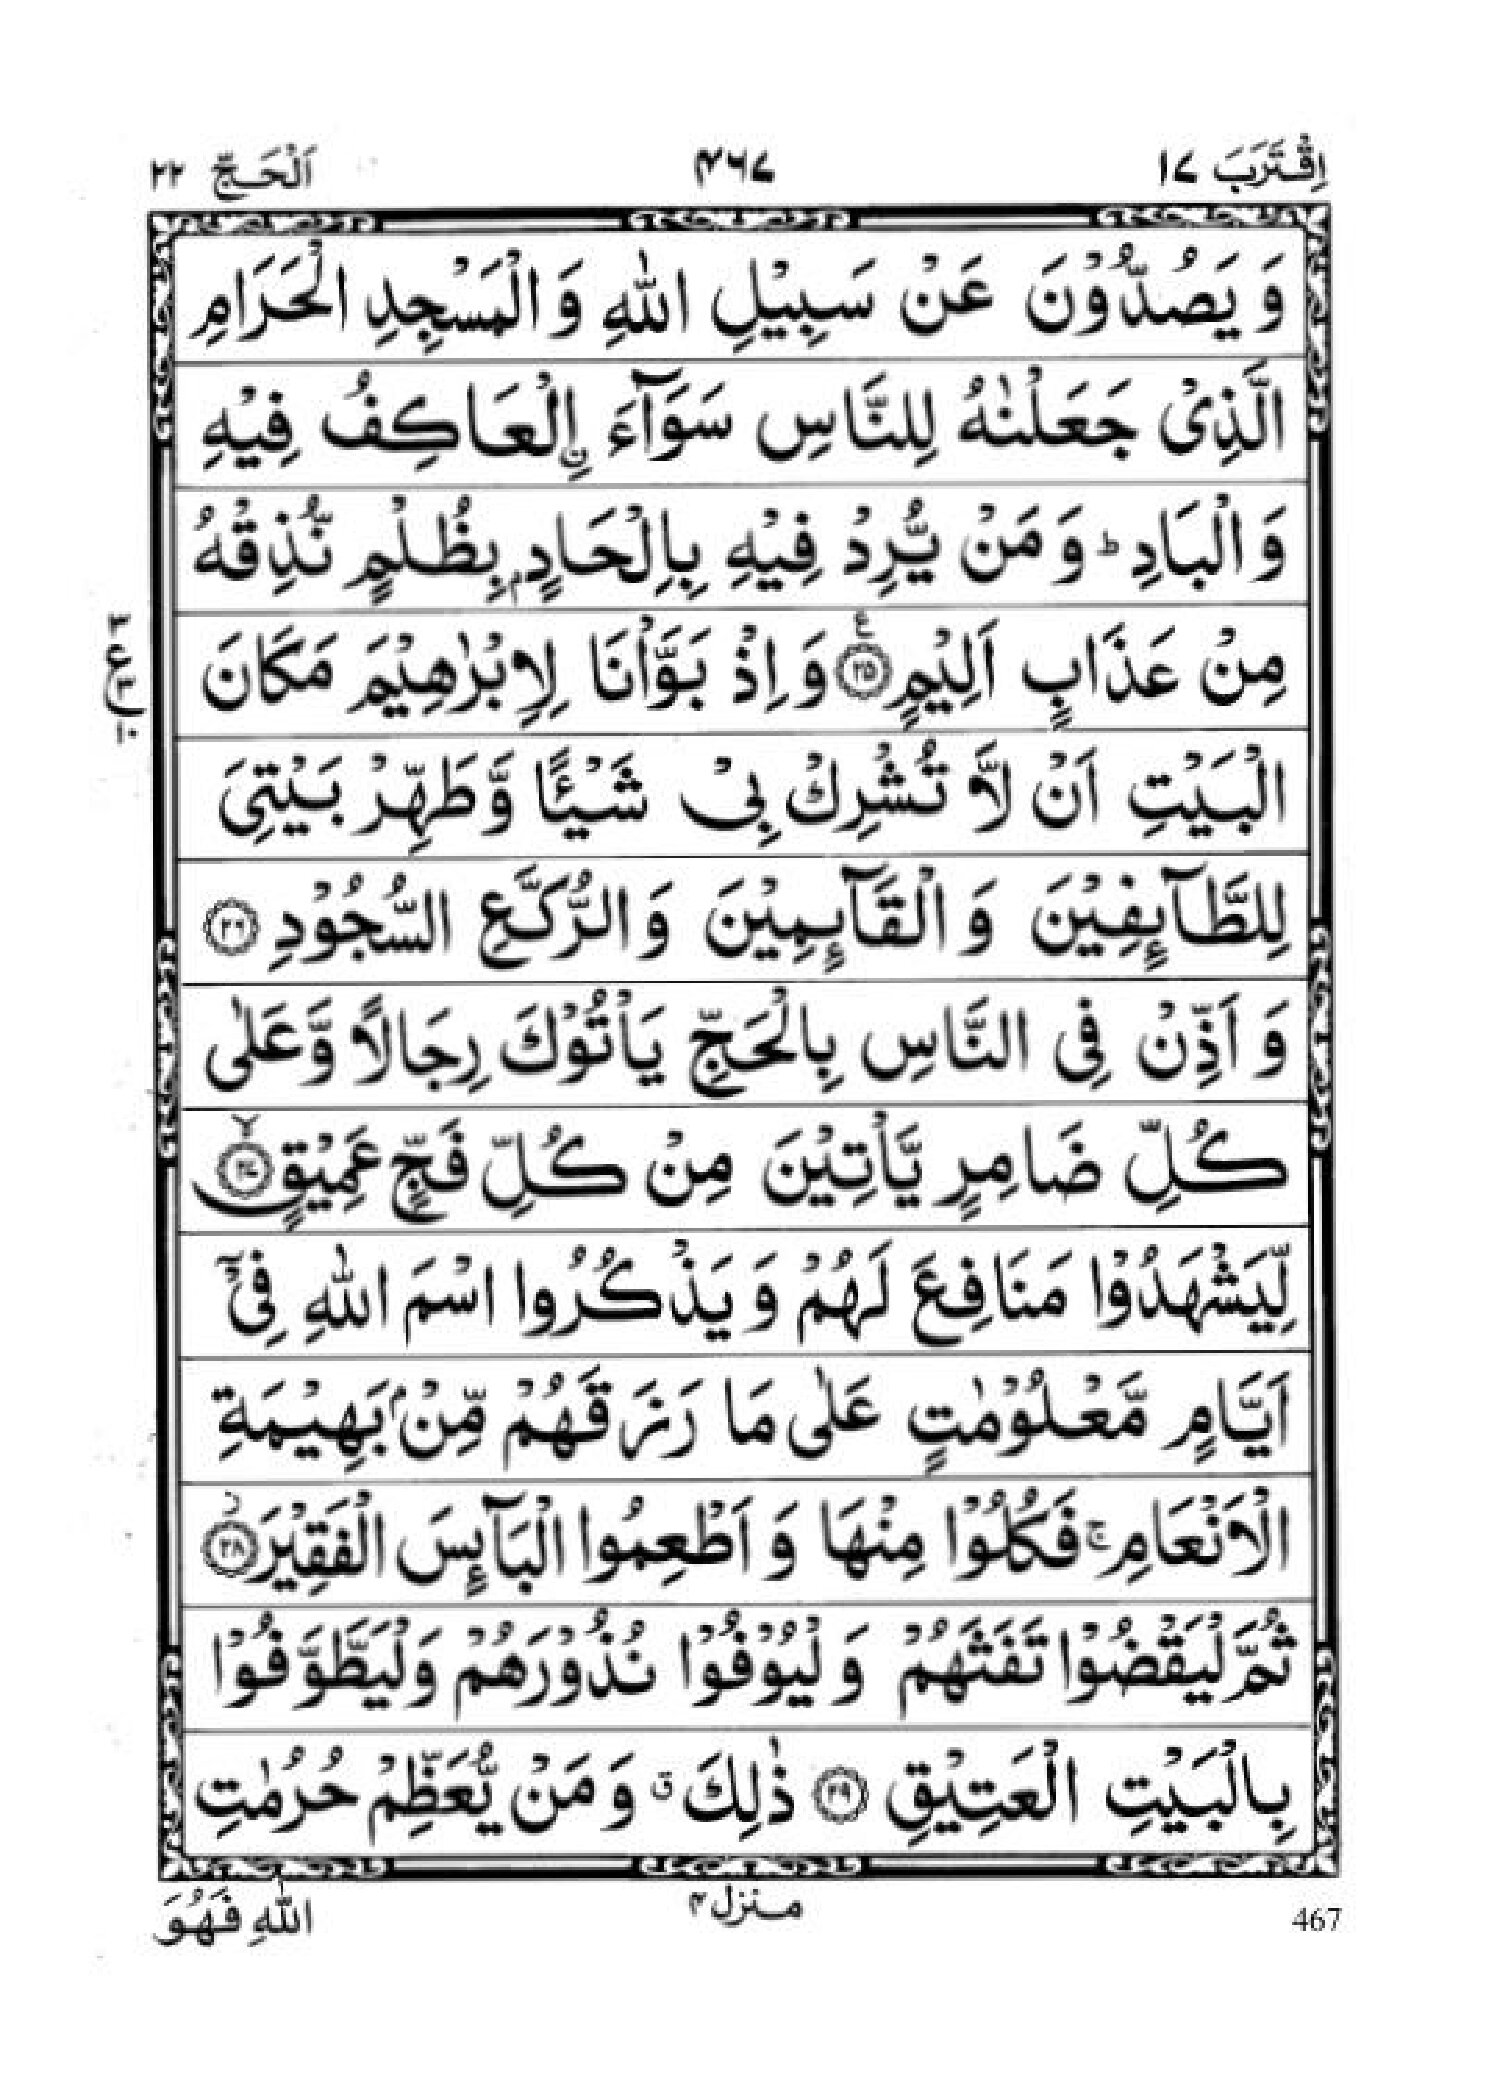 اِقْتَرَبَ ١٧ ٤٦٧ اَلْحَجّ ٢٢
وَ يَصُدُّوْنَ عَنْ سَبِيْلِ اللّٰهِ وَ الْمَسْجِدِ الْحَرَامِ
الَّذِىْ جَعَلْنٰهُ لِلنَّاسِ سَوَآءَ اۨلْعَاكِفُ فِيْهِ
وَ الْبَادِ ؕ وَ مَنْ يُّرِدْ فِيْهِ بِاِلْحَادٍۭ بِظُلْمٍ نُّذِقْهُ
مِنْ عَذَابٍ اَلِيْمٍ ﴿٢٥﴾ ع وَ اِذْ بَوَّاْنَا لِاِبْرٰهِيْمَ مَكَانَ
٣ ع ٣ ١٠
الْبَيْتِ اَنْ لَّا تُشْرِكْ بِىْ شَيْـًٔا وَّ طَهِّرْ بَيْتِىَ
لِلطَّآىِٕفِيْنَ وَ الْقَآىِٕمِيْنَ وَ الرُّكَّعِ السُّجُوْدِ ﴿٢٦﴾
وَ اَذِّنْ فِى النَّاسِ بِالْحَجِّ يَاْتُوْكَ رِجَالًا وَّ عَلٰى
كُلِّ ضَامِرٍ يَّاْتِيْنَ مِنْ كُلِّ فَجٍّ عَمِيْقٍ ﴿٢٧﴾ ۙ
لِّيَشْهَدُوْا مَنَافِعَ لَهُمْ وَ يَذْكُرُوا اسْمَ اللّٰهِ فِىْۤ
اَيَّامٍ مَّعْلُوْمٰتٍ عَلٰى مَا رَزَقَهُمْ مِّنْۢ بَهِيْمَةِ
الْاَنْعَامِ ۚ فَكُلُوْا مِنْهَا وَ اَطْعِمُوا الْبَآىِٕسَ الْفَقِيْرَ ﴿٢٨﴾ ؗ
ثُمَّ لْيَقْضُوْا تَفَثَهُمْ وَ لْيُوْفُوْا نُذُوْرَهُمْ وَ لْيَطَّوَّفُوْا
بِالْبَيْتِ الْعَتِيْقِ ﴿٢٩﴾ ذٰلِكَ ق وَ مَنْ يُّعَظِّمْ حُرُمٰتِ
467 منزل ٤ اللّٰهِ فَهُوَ